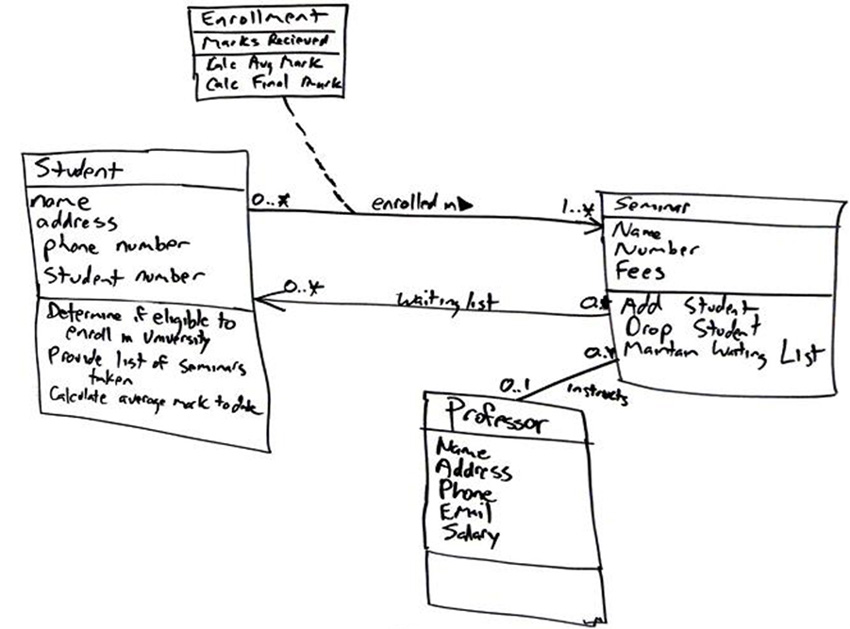 Enrollment
Marks Recieved
Calc Avg Mark
Calc Final Mark
Student
name
address
phone number
Student number
Determine if eligible to
enroll in University
Provide list of seminars
taken
Calculate average mark to date
0..*
enrolled in
1..*
0..*
waiting list
0..*
Seminar
Name
Number
Fees
Add Student
Drop Student
Maintain Waiting List
0..*
0..1
instructs
Professor
Name
Address
Phone
Email
Salary